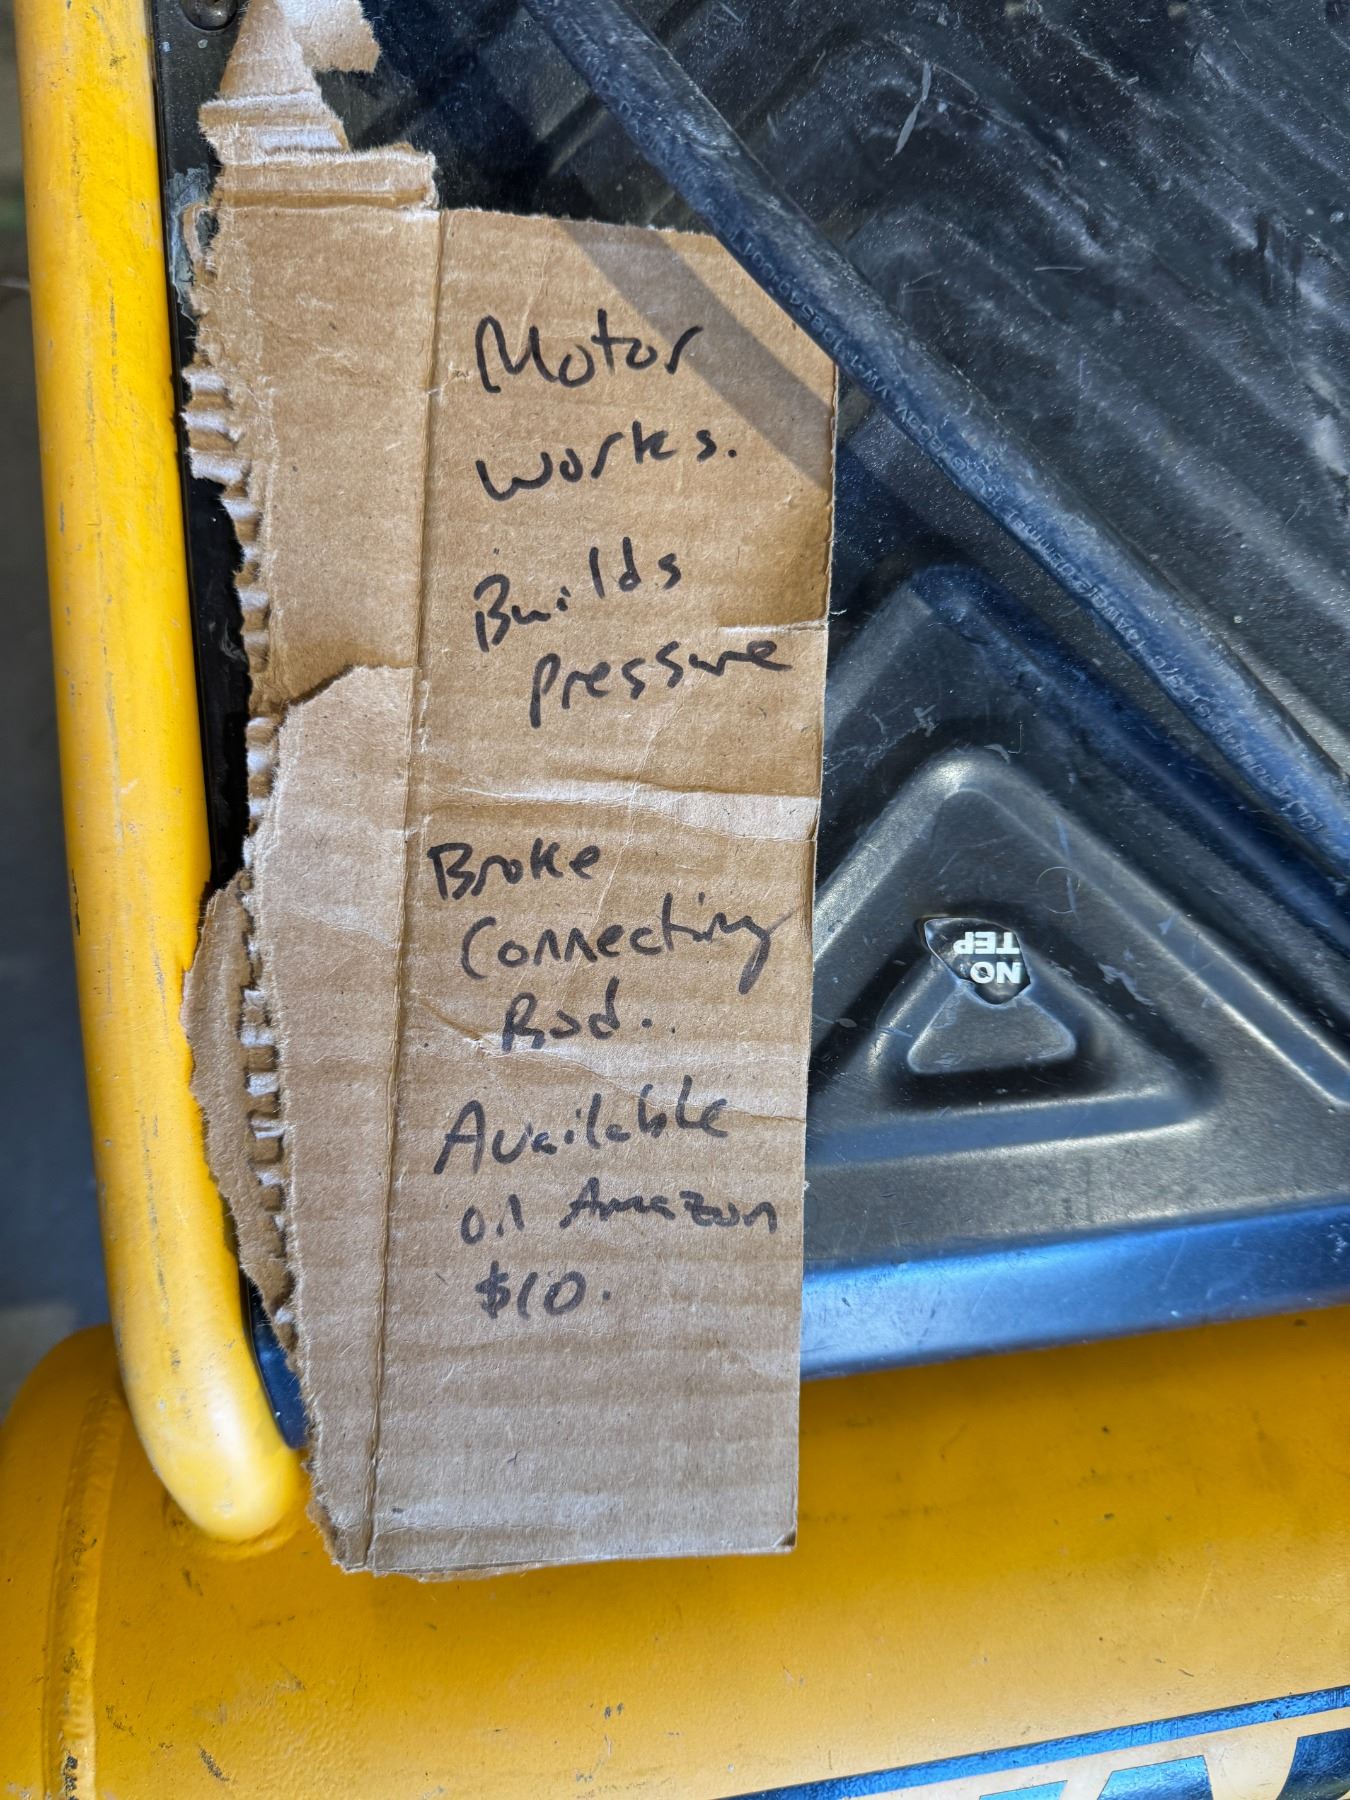 Motor
works.
Builds
pressure
Broke
Connecting
Rod.
Available
on Amazon
$10.
NO
TEP